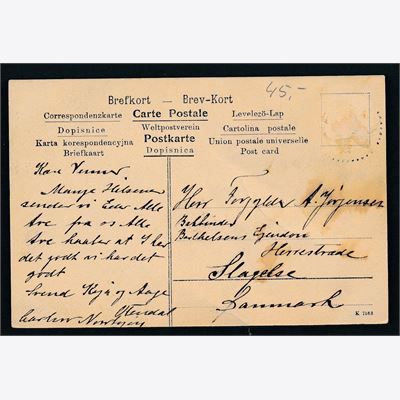 45,-
Brefkort — Brev-Kort
Correspondenzkarte Carte Postale Levelezö-Lap
Dopisnice Weltpostverein Cartolina postale
Karta korespondencyjna Postkarte Union postale universelle
Briefkaart Dopisnica Post card
Kære Venner
Mange Hilsener
sender vi Eder Alle
fra os Alle
haaber at I har
det godt vi har det
godt
Svend og Aage
Herr A. Jørgensen
Bekbinder
Barthelsens Ejendom
Herrestræde
Slagelse
Danmark
K 7563